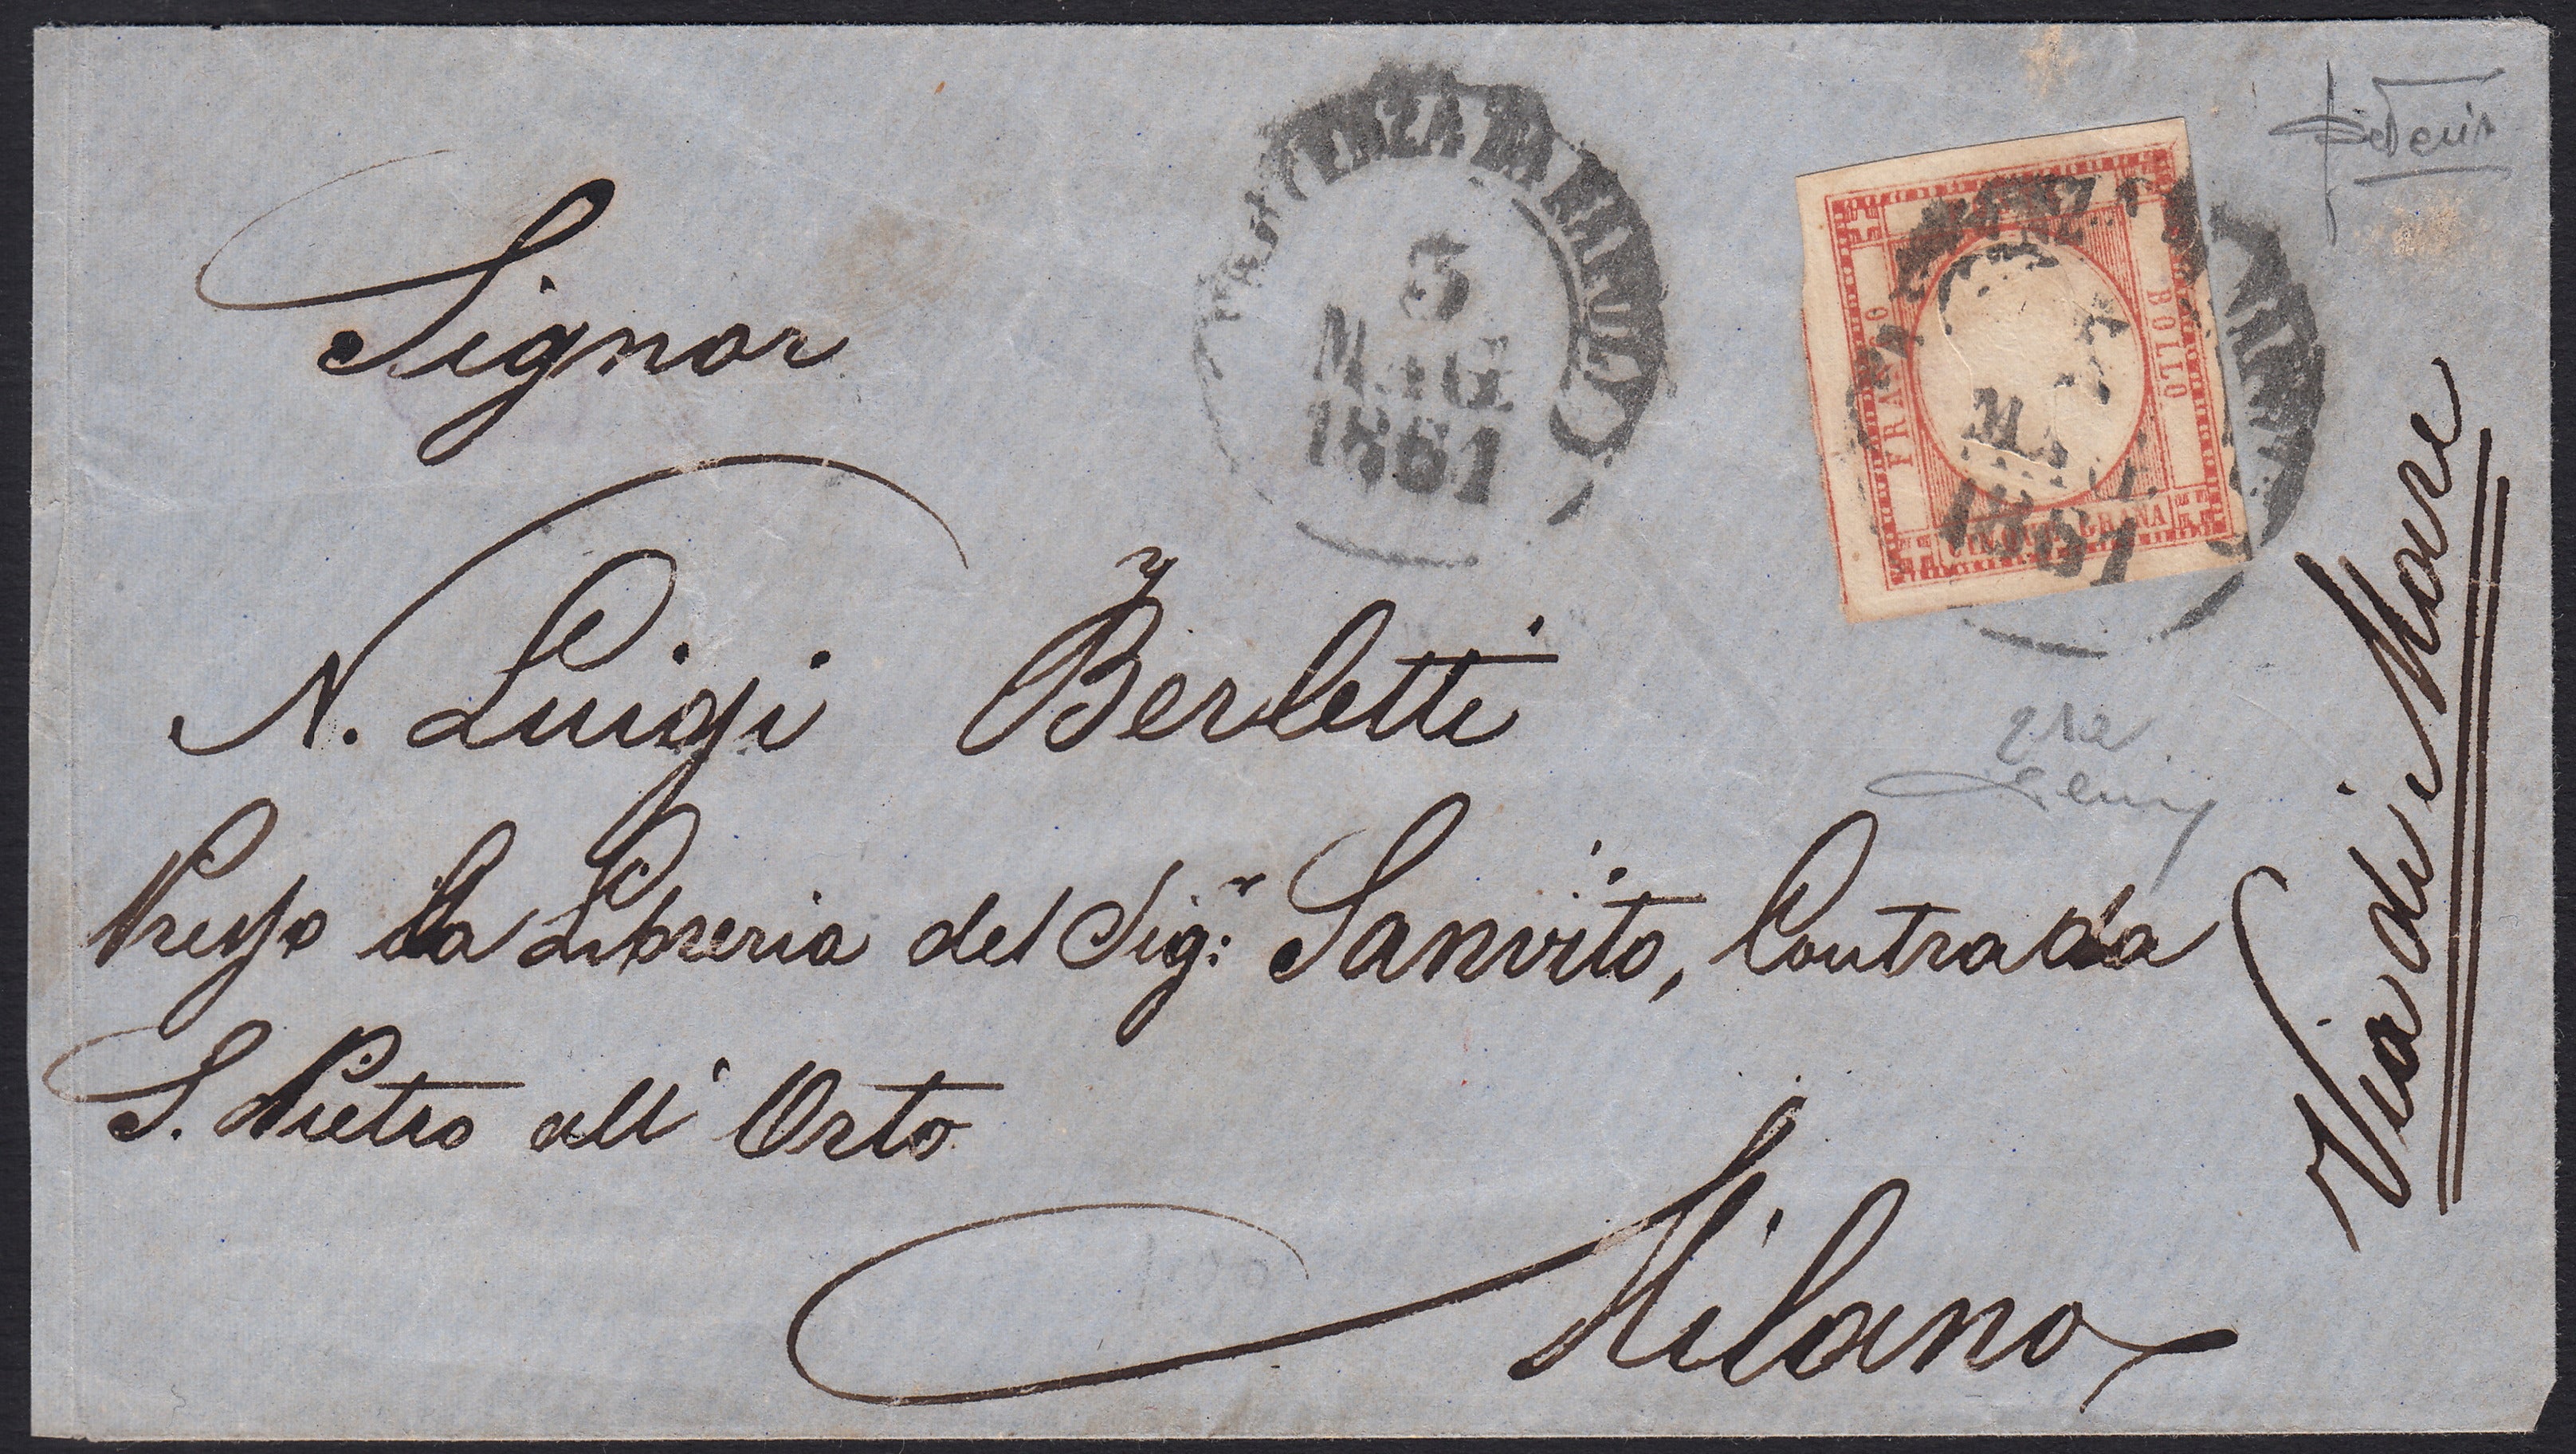 Signor
N. Luigi Berletti
Presso la Libreria del Sig.r Sanvito, Contrada
S. Pietro all' Orto
Milano
Via di Mare
DA NAPOLI
3
MAG
1861
FRANCO
BOLLO
GRANA
1861